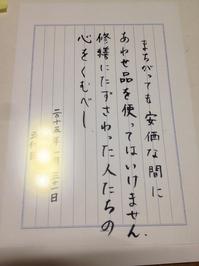 まちがっても安価な間に
あわせ品を使ってはいけません.
修繕にたずさわった人たちの
心をくむべし
二〇十五年一月三十一日